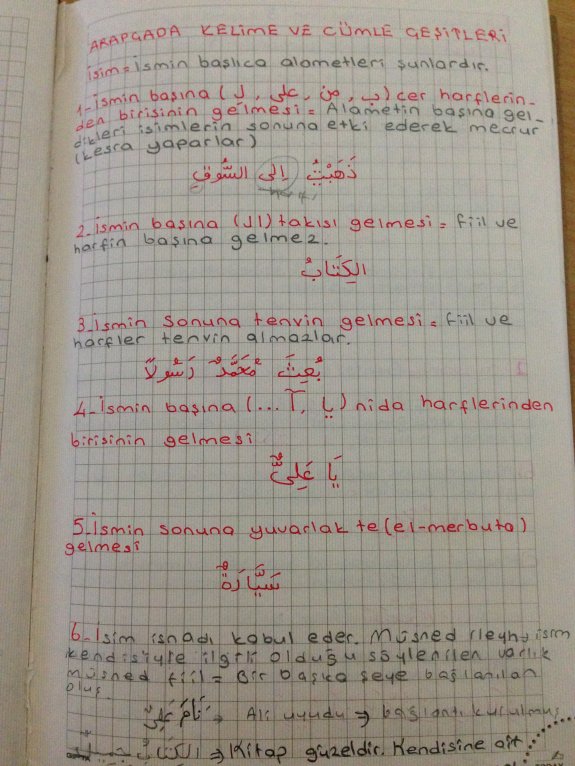 ARAPÇADA KELİME VE CÜMLE ÇEŞİTLERİ
İsim = İsmin başlıca alametleri şunlardır.
1-İsmin başına (ب, من, على, ل) cer harflerin-
den birisinin gelmesi = Alametin başına gel-
dikleri isimlerin sonuna etki ederek mecrur
(kesra yaparlar)
ذَهَبْتُ إِلى السُّوقِ
2.İsmin başına (ال) takısı gelmesi = fiil ve
harfin başına gelmez.
الكِتَابُ
3.İsmin sonuna tenvin gelmesi = fiil ve
harfler tenvin almazlar.
بُعِثَ مُحَمَّدٌ رَسُولاً
4-İsmin başına (يا, آ ...) nida harflerinden
birisinin gelmesi
يَا عَلِيٌّ
5.İsmin sonuna yuvarlak te (el-merbuta)
gelmesi
سَيَّارَةٌ
6-İsim isnadı kabul eder. Müsned ileyh → isim
kendisiyle ilgili olduğu söylenilen varlık
müsned fiil = Bir başka şeye bağlanılan
oluş.
نَامَ عَلِيٌّ → Ali uyudu → bağlantı kurulmuş
الكِتَابُ → Kitap güzeldir. Kendisine ait